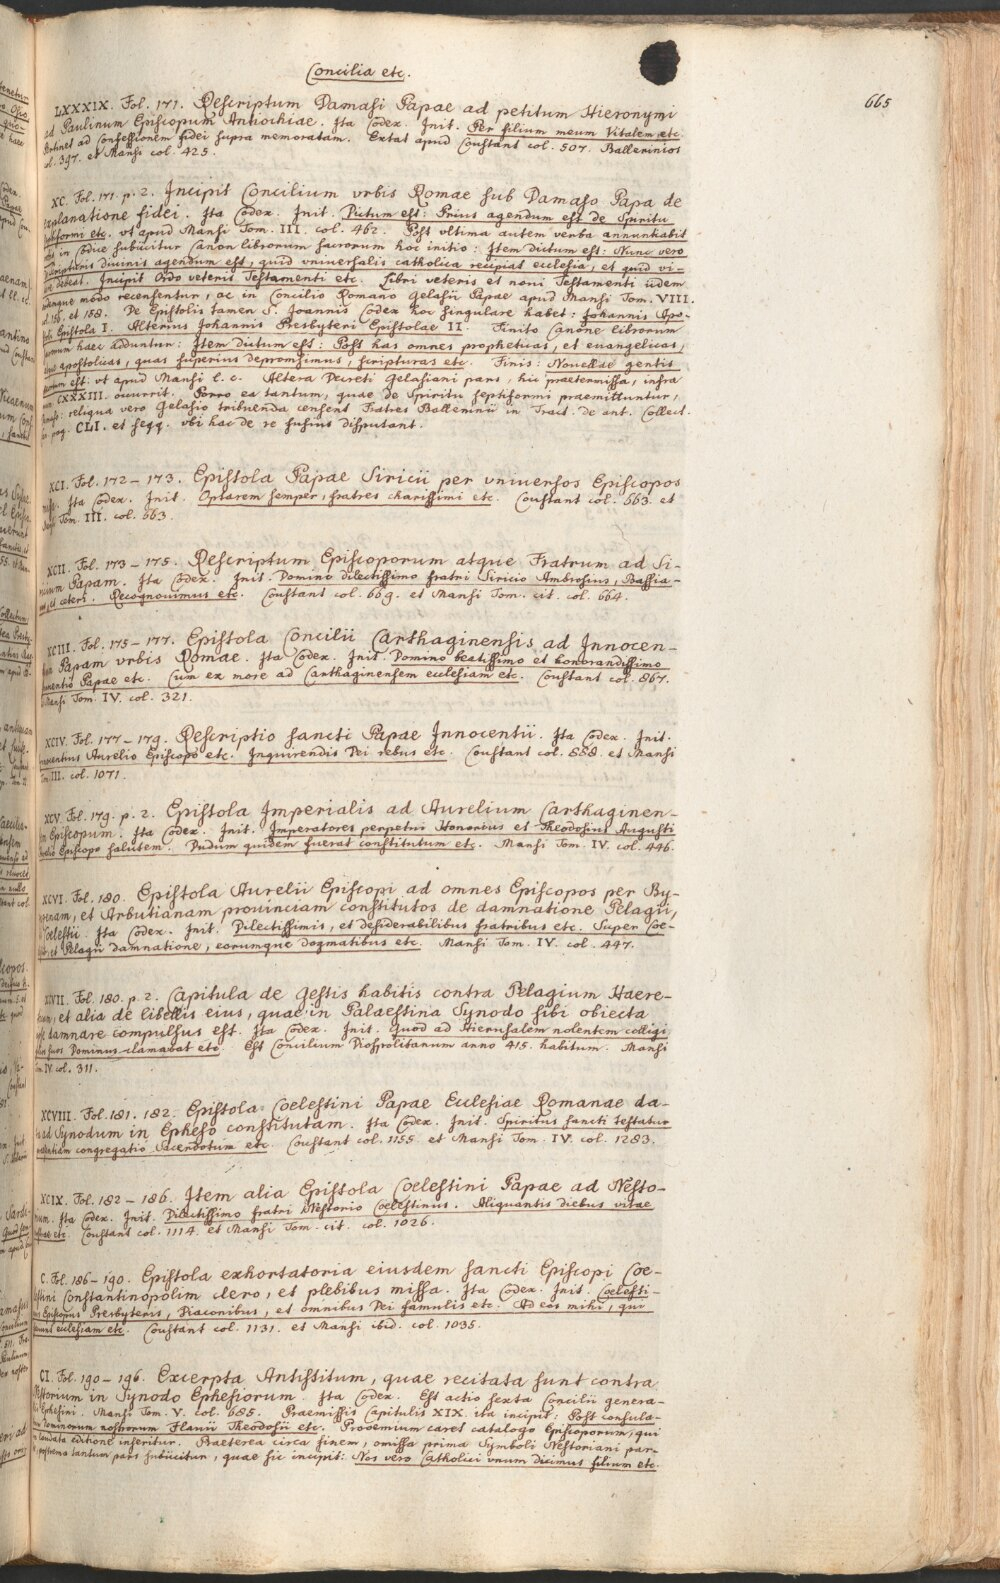 Concilia etc.
665
LXXXIX. Fol. 171. Descriptum Damasi Papae ad petitum Hieronymi
ad Paulinum Episcopum Antiochiae. Ita Codex. Init. Per filium meum Vitalem etc.
Pertinet ad Confessionem fidei supra memoratam. Extat apud Coustant col. 507. Ballerinios
col. 397. et Mansi col. 425.
XC. Fol. 171. p. 2. Incipit Concilium vrbis Romae sub Damaso Papa de
explanatione fidei. Ita Codex. Init. Dictum est: Prius agendum est de Spiritu
septiformi etc. vt apud Mansi Tom. III. col. 462. Post vltima autem verba annuntiabit
in Codice subiicitur Canon librorum sacrorum hoc initio: Item dictum est: Nunc vero
scripturis diuinis agendum est, quid vniuersalis catholica recipiat ecclesia, et quid vi-
debeat. Incipit Ordo veteris Testamenti etc. Libri veteris et noui Testamenti iidem
eodemque modo recensentur, ac in Concilio Romano Gelasii Papae apud Mansi Tom. VIII.
col. 156. et 158. De Epistolis tamen S. Joannis Codex hoc singulare habet: Johannis Apo-
stoli Epistola I. Alterius Johannis Presbyteri Epistolae II. Finito Canone librorum
sacrorum haec adduntur: Item dictum est: Post has omnes propheticas, et euangelicas,
apostolicas, quas superius depromsimus, scripturas etc. Finis: Nouellae gentis
est: vt apud Mansi l. c. Altera Decreti Gelasiani pars, hic praetermissa, infra
CXXXIII. occurrit. Porro ea tantum, quae de Spiritu septiformi praemittuntur,
reliqua vero Gelasio tribuenda censent Fratres Ballerinii in Tract. de ant. Collect.
pag. CLI. et seqq. vbi hac de re fusius disputant.
XCI. Fol. 172 – 173. Epistola Papae Siricii per vniuersos Episcopos
missa. Ita Codex. Init. Optarem semper, fratres charissimi etc. Coustant col. 663. et
Mansi Tom. III. col. 663.
XCII. Fol. 173 – 175. Rescriptum Episcoporum atque Fratrum ad Si-
ricium Papam. Ita Codex. Init. Domino dilectissimo fratri Siricio Ambrosius, Bassia-
nus, et ceteri. Recognouimus etc. Coustant col. 669. et Mansi Tom. cit. col. 664.
XCIII. Fol. 175 – 177. Epistola Concilii Carthaginensis ad Innocen-
tium Papam vrbis Romae. Ita Codex. Init. Domino beatissimo et honorandissimo
Innocentio Papae etc. Cum ex more ad Carthaginensem ecclesiam etc. Coustant col. 867.
Mansi Tom. IV. col. 321.
XCIV. Fol. 177 – 179. Descriptio sancti Papae Innocentii. Ita Codex. Init.
Innocentius Aurelio Episcopo etc. Inquirendis Dei rebus etc. Coustant col. 888. et Mansi
Tom. III. col. 1071.
XCV. Fol. 179. p. 2. Epistola Imperialis ad Aurelium Carthaginen-
sem Episcopum. Ita Codex. Init. Imperatores perpetui Honorius et Theodosius Augusti
Aurelio Episcopo salutem. Dudum quidem fuerat constitutum etc. Mansi Tom. IV. col. 446.
XCVI. Fol. 180. Epistola Aurelii Episcopi ad omnes Episcopos per By-
zacenam, et Arbutianam prouinciam constitutos de damnatione Pelagii,
et Coelestii. Ita Codex. Init. Dilectissimis, et desiderabilibus fratribus etc. Super Coe-
lestii, et Pelagii damnatione, eorumque dogmatibus etc. Mansi Tom. IV. col. 447.
XCVII. Fol. 180. p. 2. Capitula de gestis habitis contra Pelagium Haere-
ticum, et alia de libellis eius, quae in Palaestina Synodo sibi obiecta
ipse damnare compulsus est. Ita Codex. Init. Quod ad Hierusalem nolentem colligi
filios suos Dominus clamabat etc. Est Concilium Diospolitanum anno 415. habitum. Mansi
Tom. IV. col. 311.
XCVIII. Fol. 181. 182. Epistola Coelestini Papae Ecclesiae Romanae da-
ta ad Synodum in Epheso constitutam. Ita Codex. Init. Spiritus sancti testatur
praesentiam congregatio Sacerdotum etc. Coustant col. 1155. et Mansi Tom. IV. col. 1283.
XCIX. Fol. 182 – 186. Item alia Epistola Coelestini Papae ad Nesto-
rium. Ita Codex. Init. Dilectissimo fratri Nestorio Coelestinus. Aliquantis diebus vitae
nostrae etc. Coustant col. 1114. et Mansi Tom. cit. col. 1026.
C. Fol. 186 – 190. Epistola exhortatoria eiusdem sancti Episcopi Coe-
lestini Constantinopolim clero, et plebibus missa. Ita Codex. Init. Coelesti-
nus Episcopus Presbyteris, Diaconibus, et omnibus Dei famulis etc. Ad eos mihi, qui
faciunt ecclesiam etc. Coustant col. 1131. et Mansi ibid. col. 1035.
CI. Fol. 190 – 196. Excerpta Antistitum, quae recitata sunt contra
Nestorium in Synodo Ephesiorum. Ita Codex. Est actio sexta Concilii genera-
lis Ephesini. Mansi Tom. V. col. 685. Praemissis Capitulis XIX. ita incipit: Post consula-
tum Dominorum nostrorum Flauii Theodosii etc. Prooemium caret catalogo Episcoporum, qui
in laudata editione inseritur. Praeterea circa finem, omissa prima Symboli Nestoriani par-
te, postrema tantum pars subiicitur, quae sic incipit: Nos vero Catholici vnum dicimus filium etc.